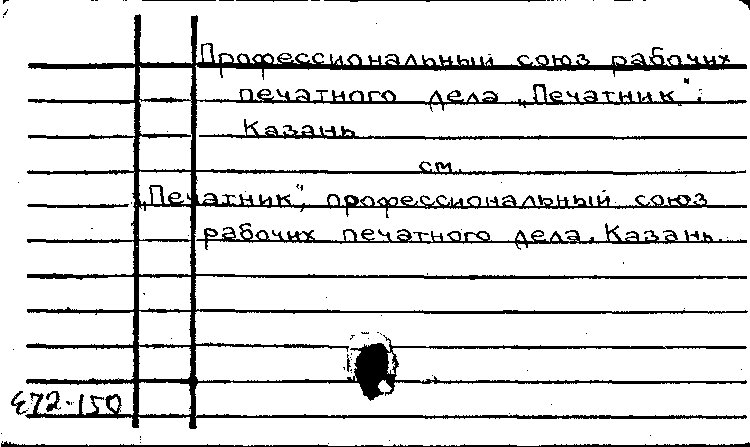 Профессиональный союз рабочих
печатного дела „Печатник".
Казань
см.
„Печатник", профессиональный союз
рабочих печатного дела. Казань.
E72-150